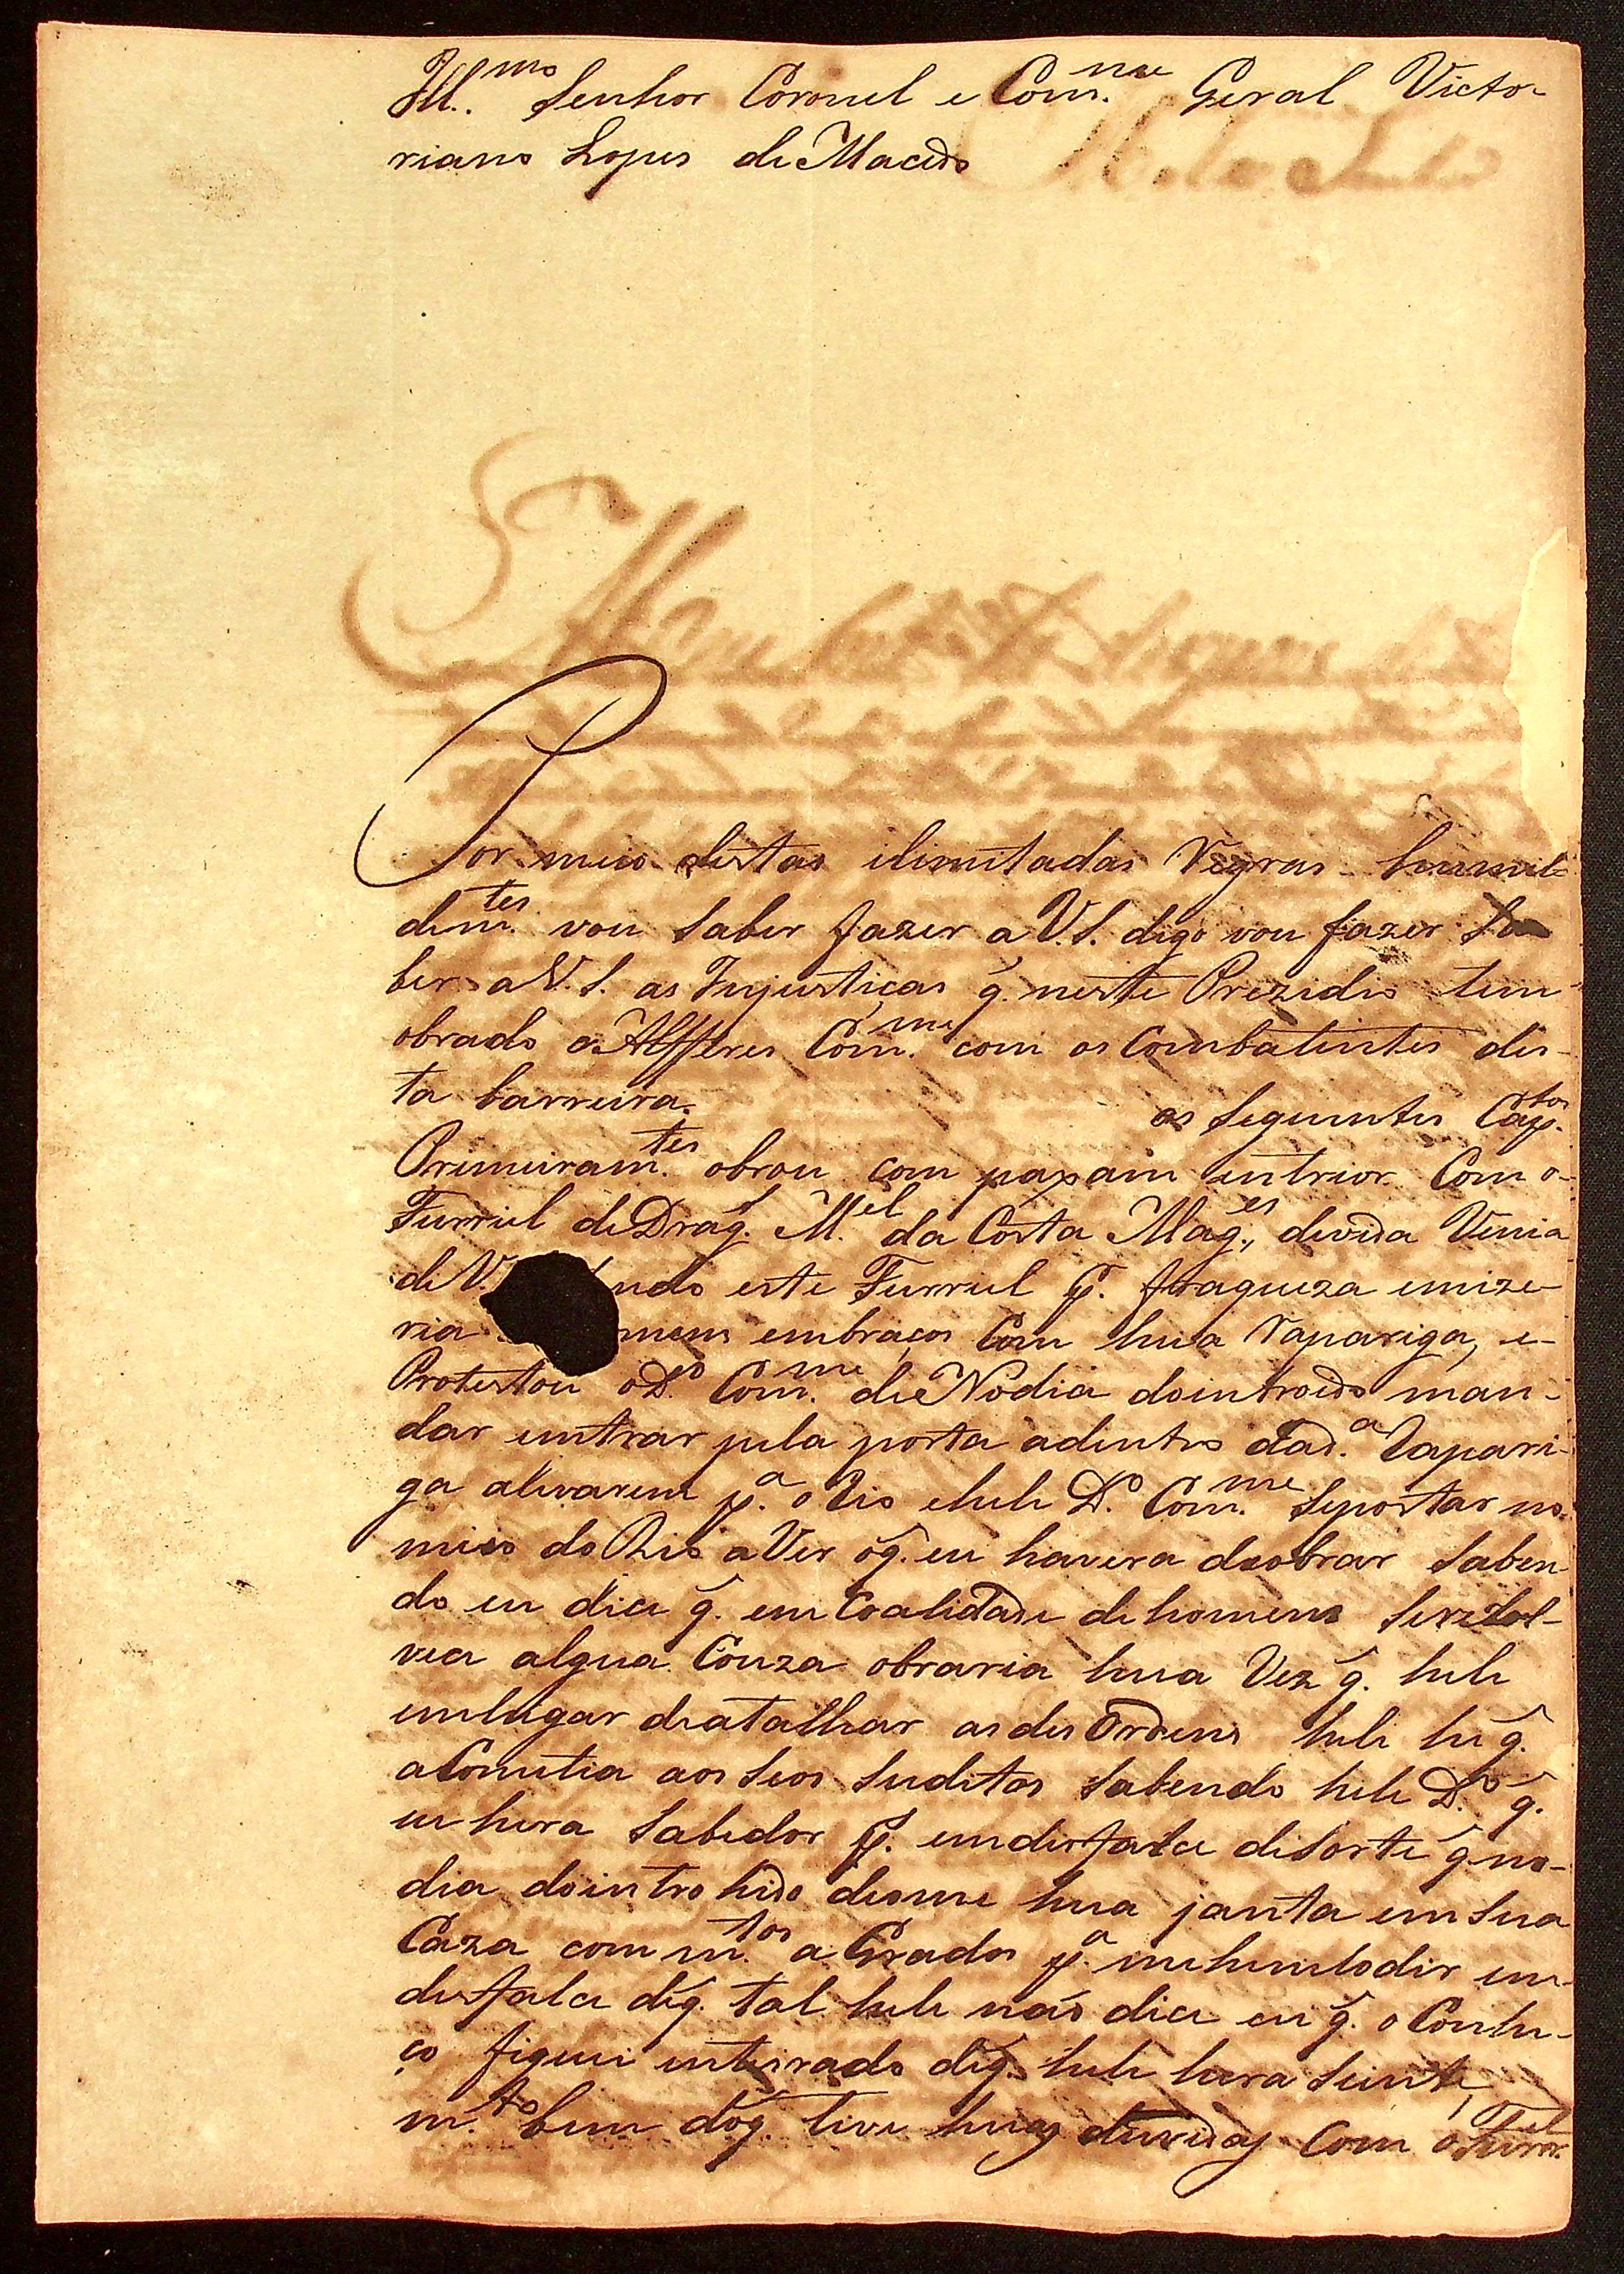 Ill.mo Senhor Coronel e Com.nte Geral Victo-
riano Lopes de Macedo
Por meio destas ilimitadas Regras humil-
dem.tes vou saber fazer a V. S. digo vou fazer Sa
ber a V. S. as Injustiças q. neste Prezidio tem
obrado o Alfferes Com.me com os Combatentes des-
ta barreira.
os seguintes Cap.tos
Primeiram.tes obrou com paxam intrior Com o
Furriel de Drag. M.el da Costa Mag.es, devida Venia
de V. ndo este Furriel p. fraqueza emize-
ria mem embraços Com hua Rapariga, e
Protestou o D.o Com.me de No dia do introido man-
dar emtrar pela porta adentro da d.a Rapari-
ga alevarem p.a o Rio e hele D.o Com.me Se postar no
meio do Rio a Ver o q. eu havera de obrar Saben
do eu dice q. em Coalidade de homem
algua Couza obraria hua Vez q. hele
em lugar de atalhar as des Ordens hele he q.
aCometia aos Seos Suditos Sabendo hele D.o q.
eu hera Sabedor p. em desfalce de Sorte q no
dia do introhido deome hua janta em Sua
Caza com m.tos a Grados p.a em
desfalce de q. tal hele não dice eu q. o Conhe-
ço fiquei inteirado de q. hele hera Siente,
m.to bem do q. tive huas duvidas Com o Furr.el